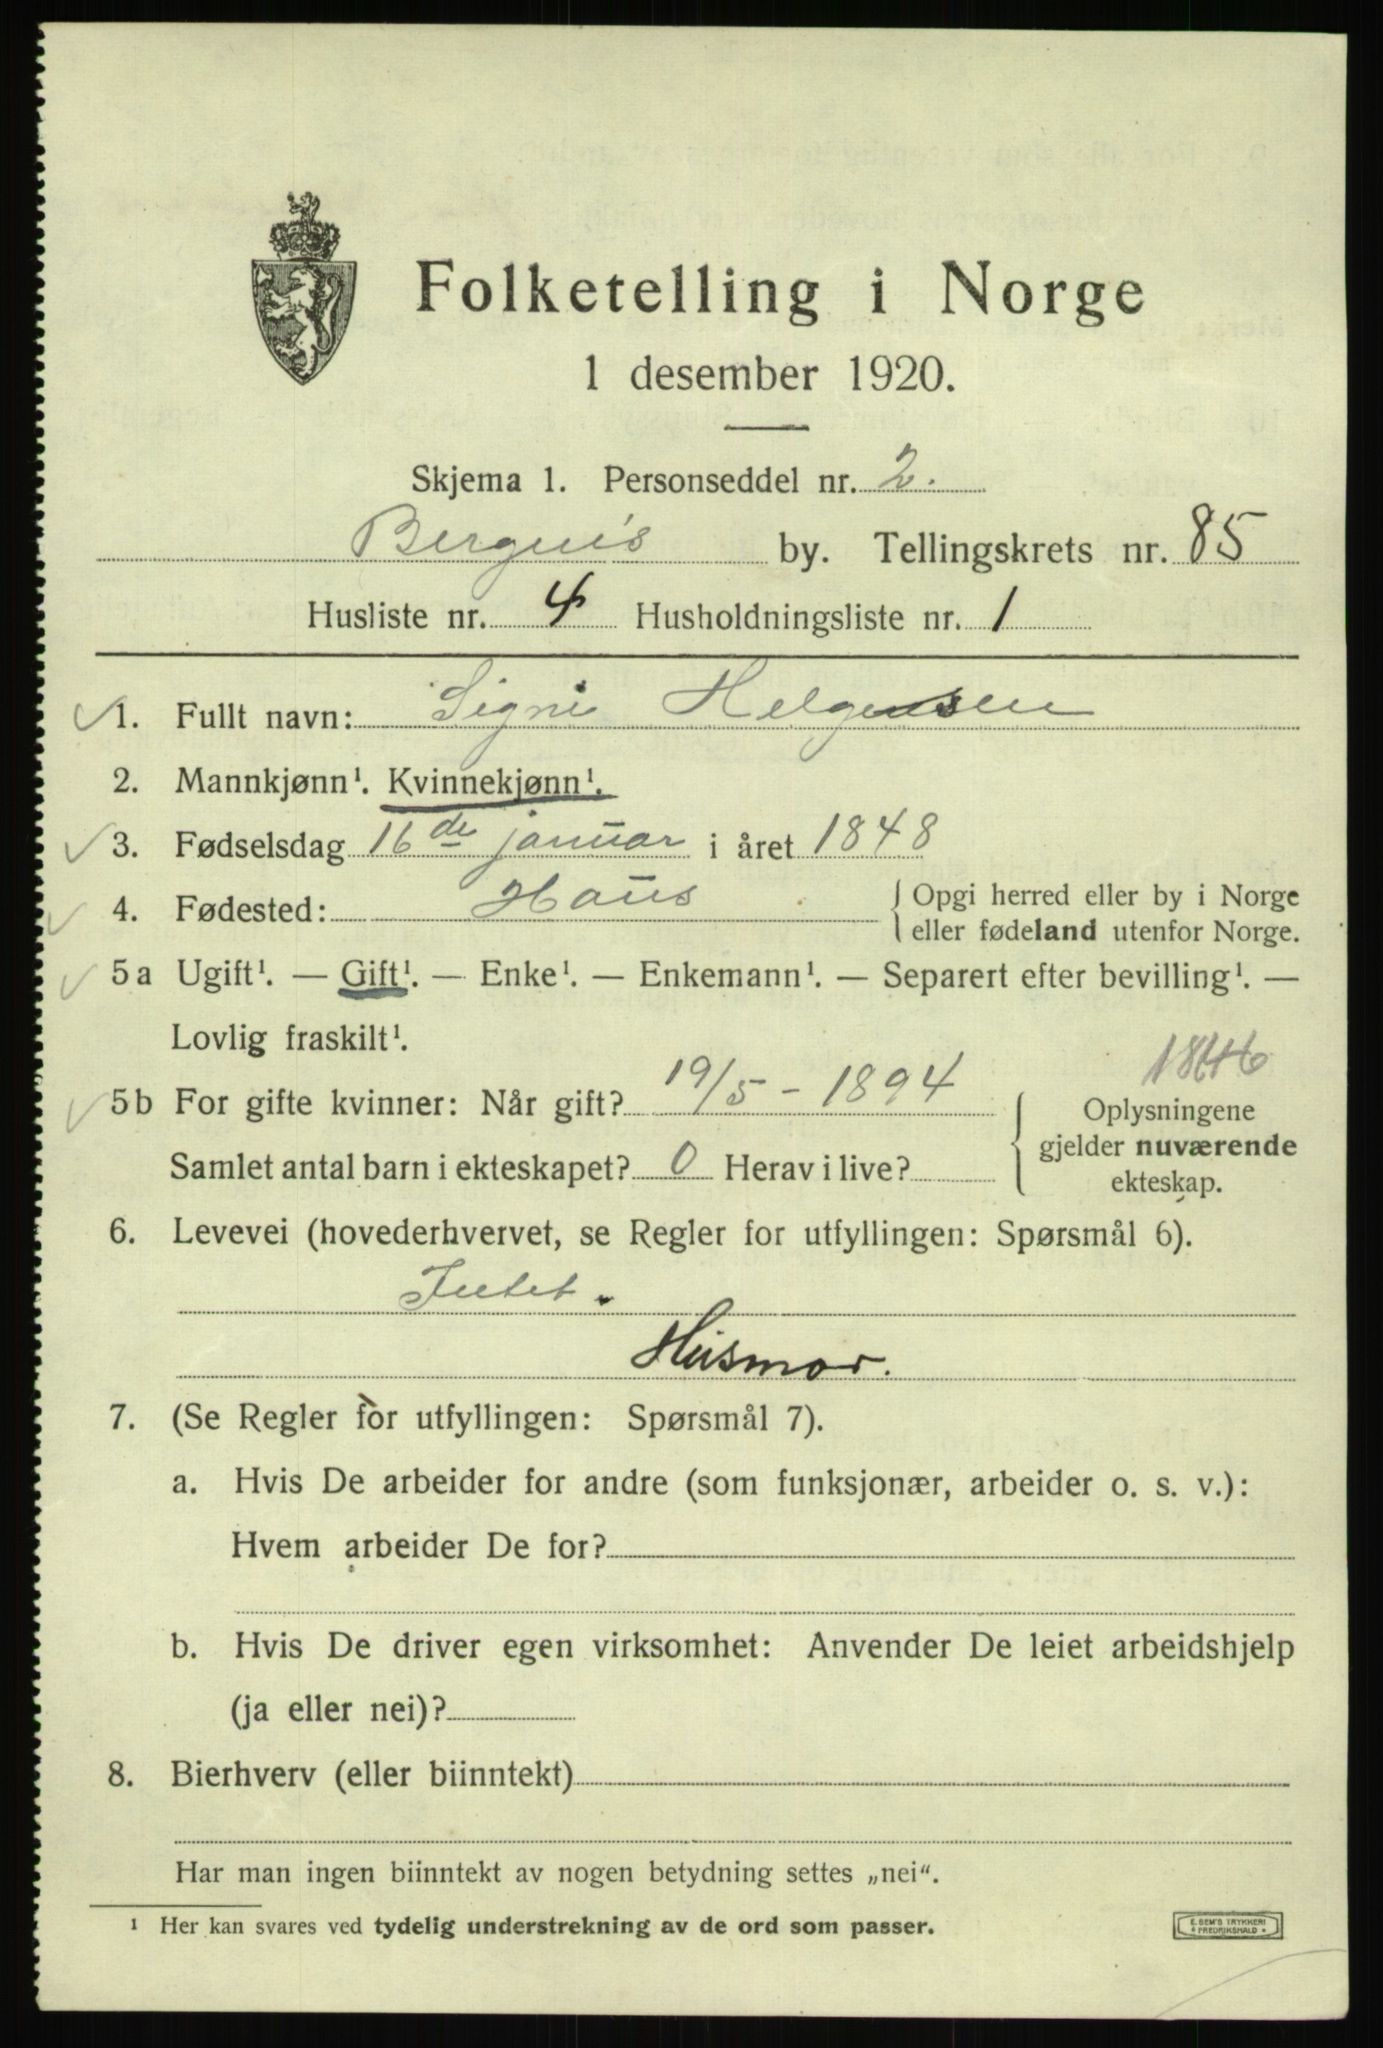 Folketelling i Norge
1 desember 1920.
Skjema 1. Personseddel nr. 2.
Bergens by. Tellingskrets nr. 85
Husliste nr. 4 Husholdningsliste nr. 1
1. Fullt navn: Signe Helgesen
2. Mannkjønn¹. Kvinnekjønn¹.
3. Fødselsdag 16de januar i året 1848
4. Fødested: Haus { Opgi herred eller by i Norge
eller fødeland utenfor Norge.
5 a Ugift¹. — Gift¹. — Enke¹. — Enkemann¹. — Separert efter bevilling¹. —
Lovlig fraskilt¹.
5 b For gifte kvinner: Når gift? 19/5 - 1894
Samlet antal barn i ekteskapet? 0 Herav i live?
Oplysningene
gjelder nuværende
ekteskap.
6. Levevei (hovederhvervet, se Regler for utfyllingen: Spørsmål 6).
Intet.
Husmor.
7. (Se Regler for utfyllingen: Spørsmål 7).
a. Hvis De arbeider for andre (som funksjonær, arbeider o. s. v.):
Hvem arbeider De for?
b. Hvis De driver egen virksomhet: Anvender De leiet arbeidshjelp
(ja eller nei)?
8. Bierhverv (eller biinntekt)
Har man ingen biinntekt av nogen betydning settes „nei“.
¹ Her kan svares ved tydelig understrekning av de ord som passer.
E. SEM'S TRYKKERI
FREDRIKSHALD